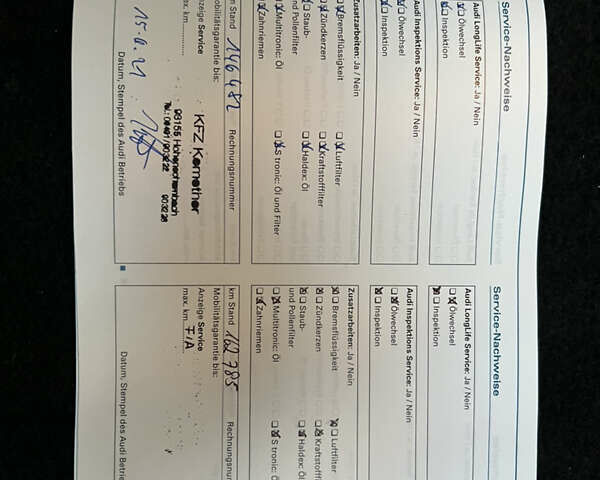 Service-Nachweise
Audi LongLife Service: Ja / Nein
Ölwechsel
Inspektion
Audi Inspektions Service: Ja / Nein
Ölwechsel
Inspektion
Zusatzarbeiten: Ja / Nein
Bremsflüssigkeit
Luftfilter
Zündkerzen
Kraftstofffilter
Staub-
und Pollenfilter
Haldex: Öl
Multitronic: Öl
S tronic: Öl und Filter
Zahnriemen
km Stand 146482
Rechnungsnummer
Anzeige Service
Mobilitätsgarantie bis:
max. km
KFZ Kemether
15.6.21
Datum, Stempel des Audi Betriebs
Service-Nachweise
Audi LongLife Service: Ja / Nein
Ölwechsel
Inspektion
Audi Inspektions Service: Ja / Nein
Ölwechsel
Inspektion
Zusatzarbeiten: Ja / Nein
Bremsflüssigkeit
Luftfilter
Zündkerzen
Kraftstofff
Staub-
und Pollenfilter
Haldex: Öl
Multitronic: Öl
S tronic: Öl
Zahnriemen
km Stand 162785
Rechnungsnum
Anzeige Service
Mobilitätsgarantie bis:
max. km
Datum, Stempel des Audi Betrie